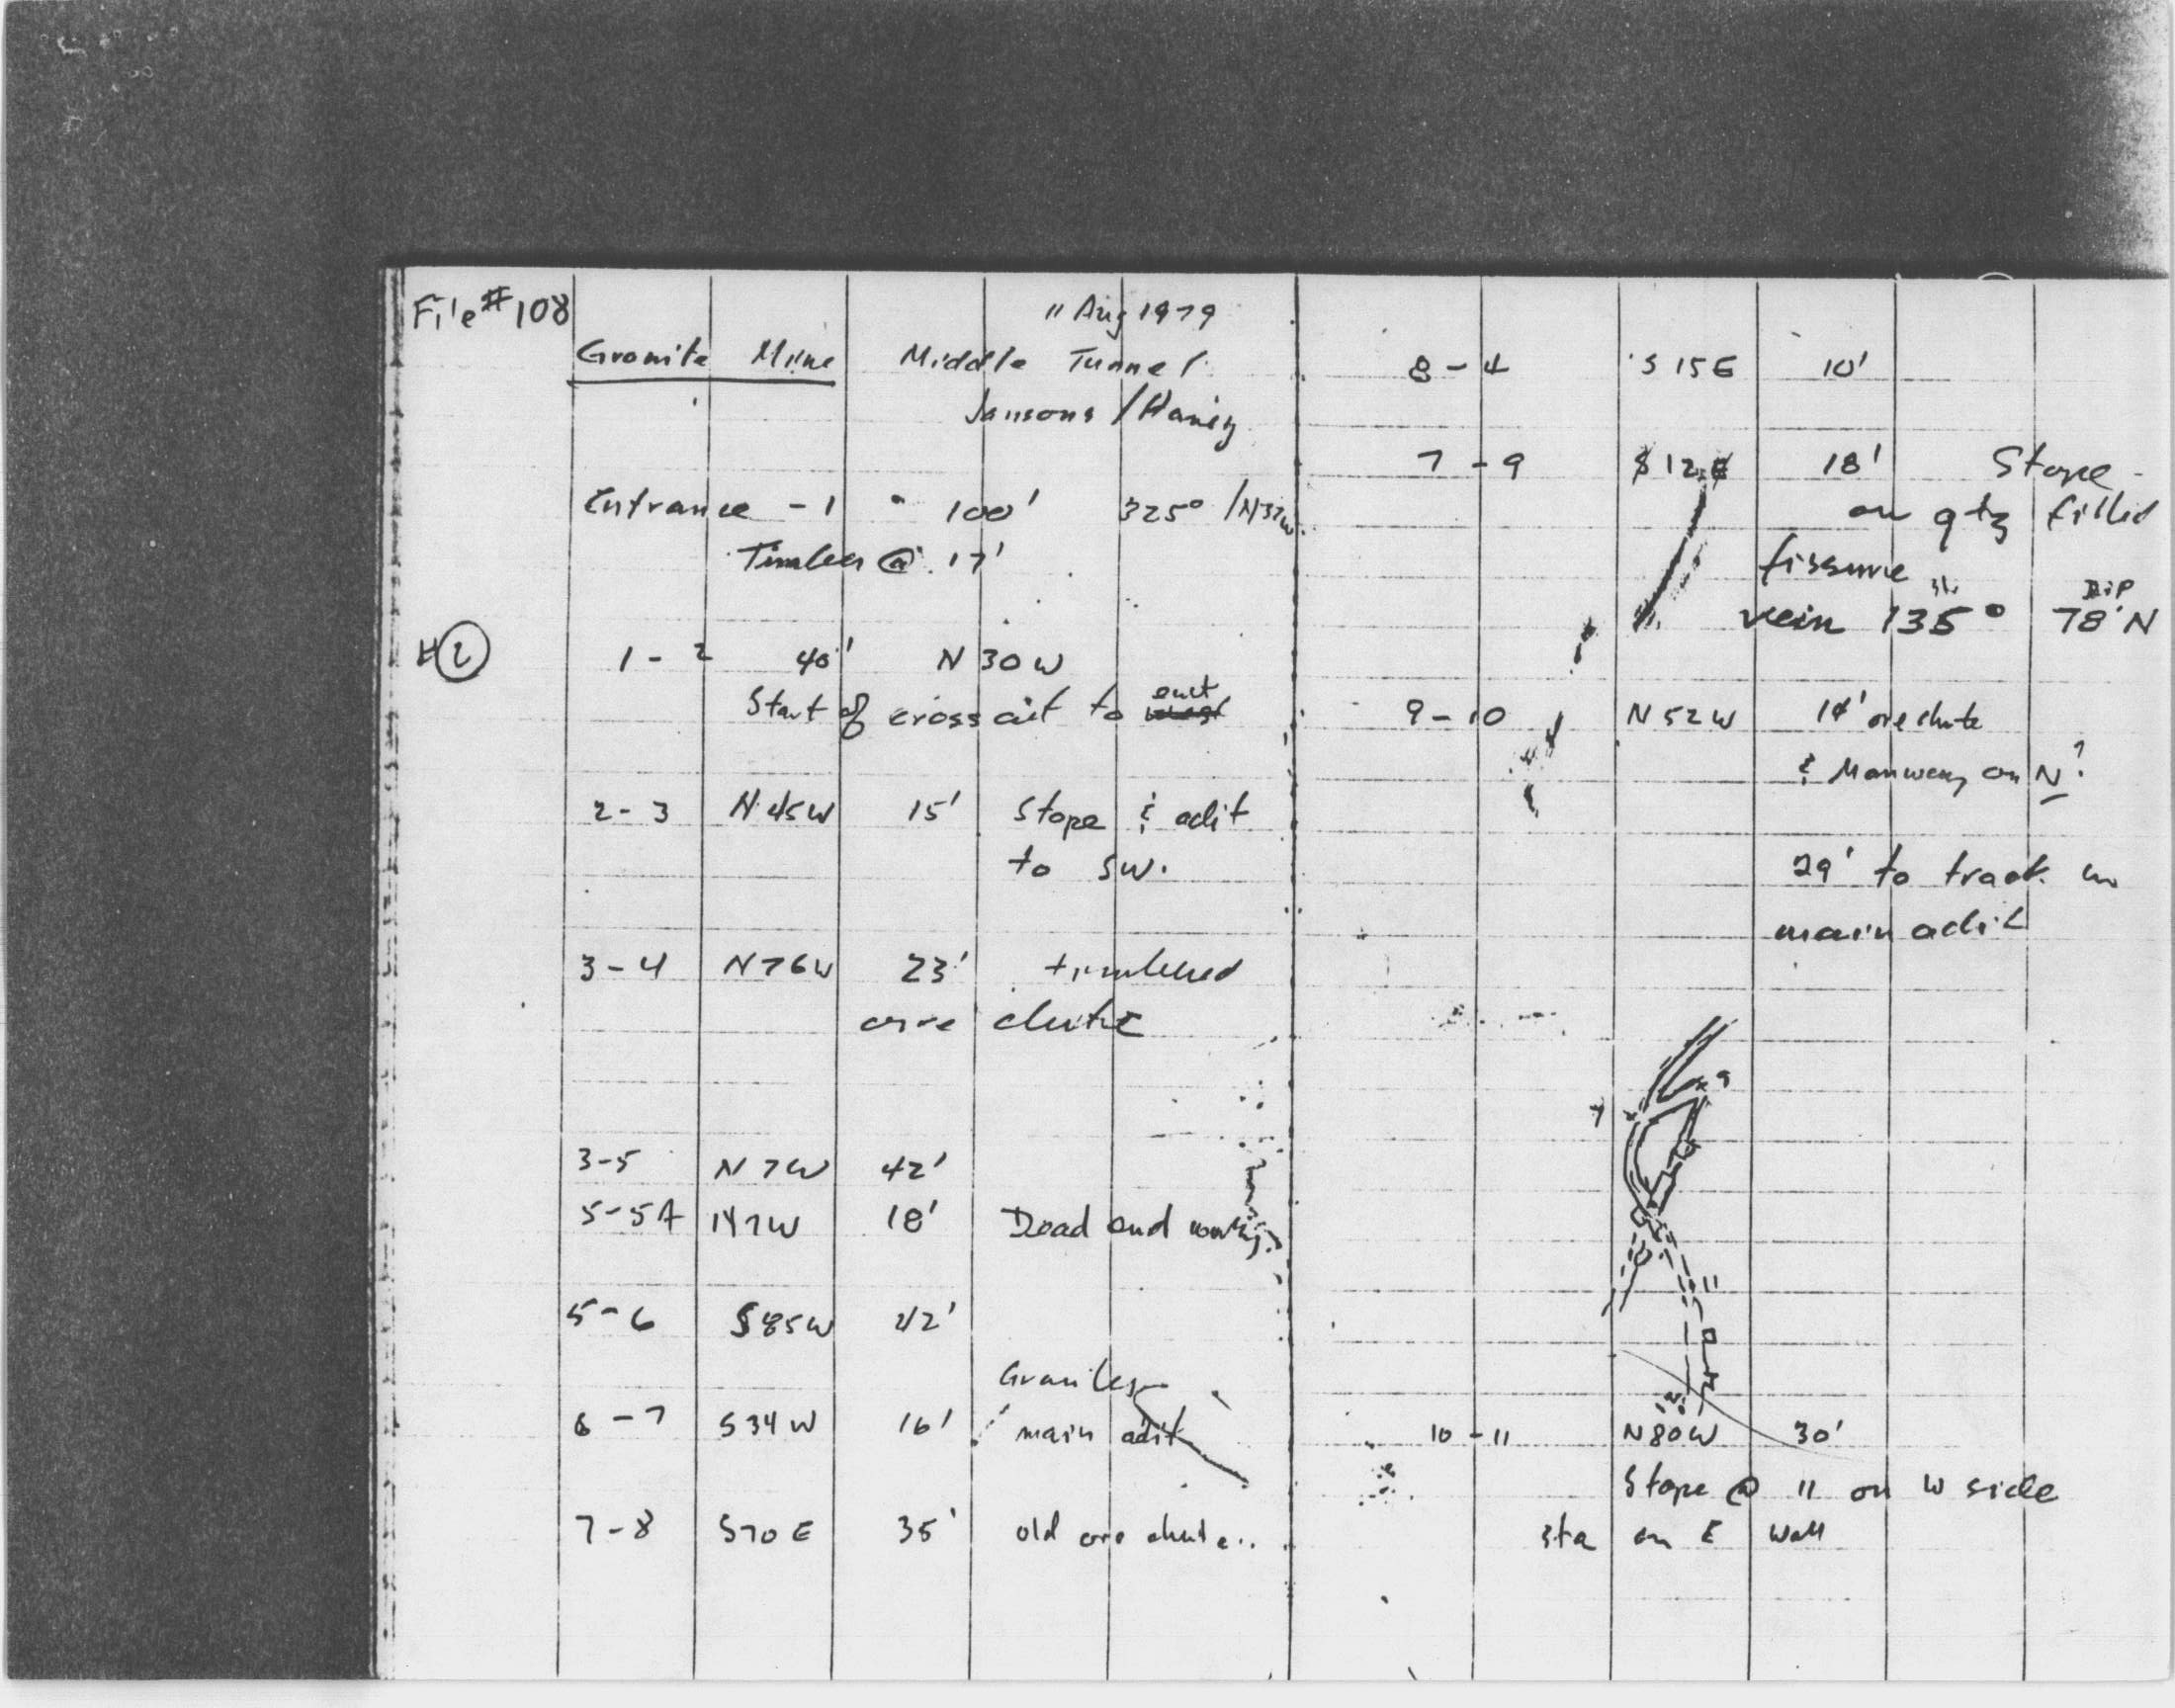 File #108
11 Aug 1979
Granite Mine Middle Tunnel
Jansons /
Entrance - 1 100' 325° /N32W
Timber @ 17'
#2
1 - 2 40' N 30 W
Start of crosscut to east
2 - 3 N 45W 15' Stope & adit
to SW.
3 - 4 N76W 23' timbered
ore chute
3-5 N 7W 42'
5-5A N7W 18' Dead end
5-6 S85W 42'
6-7 S34W 16' main adit
7-8 S70E 35' old ore chute..
8 - 4 S 15E 10'
7 - 9 S 12 E 18' Stope
on qtz filled
fissure
Dip
vein 135° 78°N
9 - 10 N 52W 14' ore chute
& Manway on N?
29' to track in
main adit
9
7
11
12
10 - 11 N80W 30'
Stope @ 11 on W side
sta on E wall